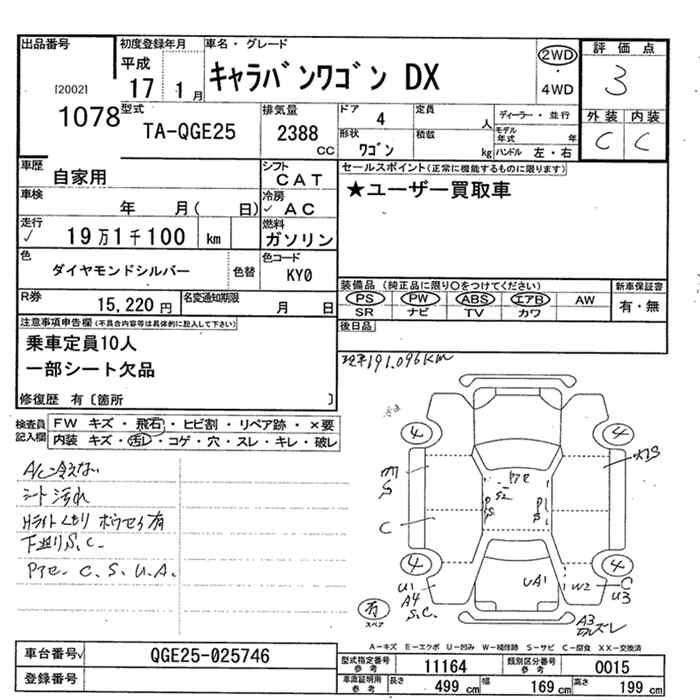 出品番号
[2002]
1078
初度登録年月
平成
17 1月
車名・グレード
キャラバンワゴン DX
2WD
4WD
評価点
3
外装 内装
C C
型式
TA-QGE25
排気量
2388 cc
ドア 4
定員 人
ディーラー・並行
形状 ワゴン
積載 kg
モデル年式 年
ハンドル 左・右
車歴 自家用
シフト CAT
セールスポイント(正常に機能するものに限ります)
★ユーザー買取車
車検 年 月( 日)
冷房 ✓ AC
走行 ✓ 19万1千100 km
燃料 ガソリン
色 ダイヤモンドシルバー
色替
色コード KY0
装備品 (純正品に限り〇をつけてください)
新車保証書
PS PW ABS エアB AW
有・無
SR ナビ TV カワ
R券 15,220 円
名変通知期限 月 日
後日品
注意事項申告欄(不具合内容等は具体的に記入して下さい)
乗車定員10人
一部シート欠品
修復歴 有〔箇所 〕
191,096km
検査員記入欄
FW キズ・飛石・ヒビ割・リペア跡・×要
内装 キズ・汚レ・コゲ・穴・スレ・キレ・破レ
A/C冷えない
シート汚れ
下廻りS.C.
C. S. U. A.
4 4
S
C
S2
P
S
4 4
U1
A4
S.C.
UA1
W2
C
U3
A3
有
スペア
A-キズ E-エクボ U-凹み W-補修跡 S-サビ C-腐食 XX-交換済
車台番号✓ QGE25-025746
登録番号
型式指定番号 参考 11164
類別区分番号 参考 0015
車庫証明用 参考 長さ 499 cm 幅 169 cm 高さ 199 cm